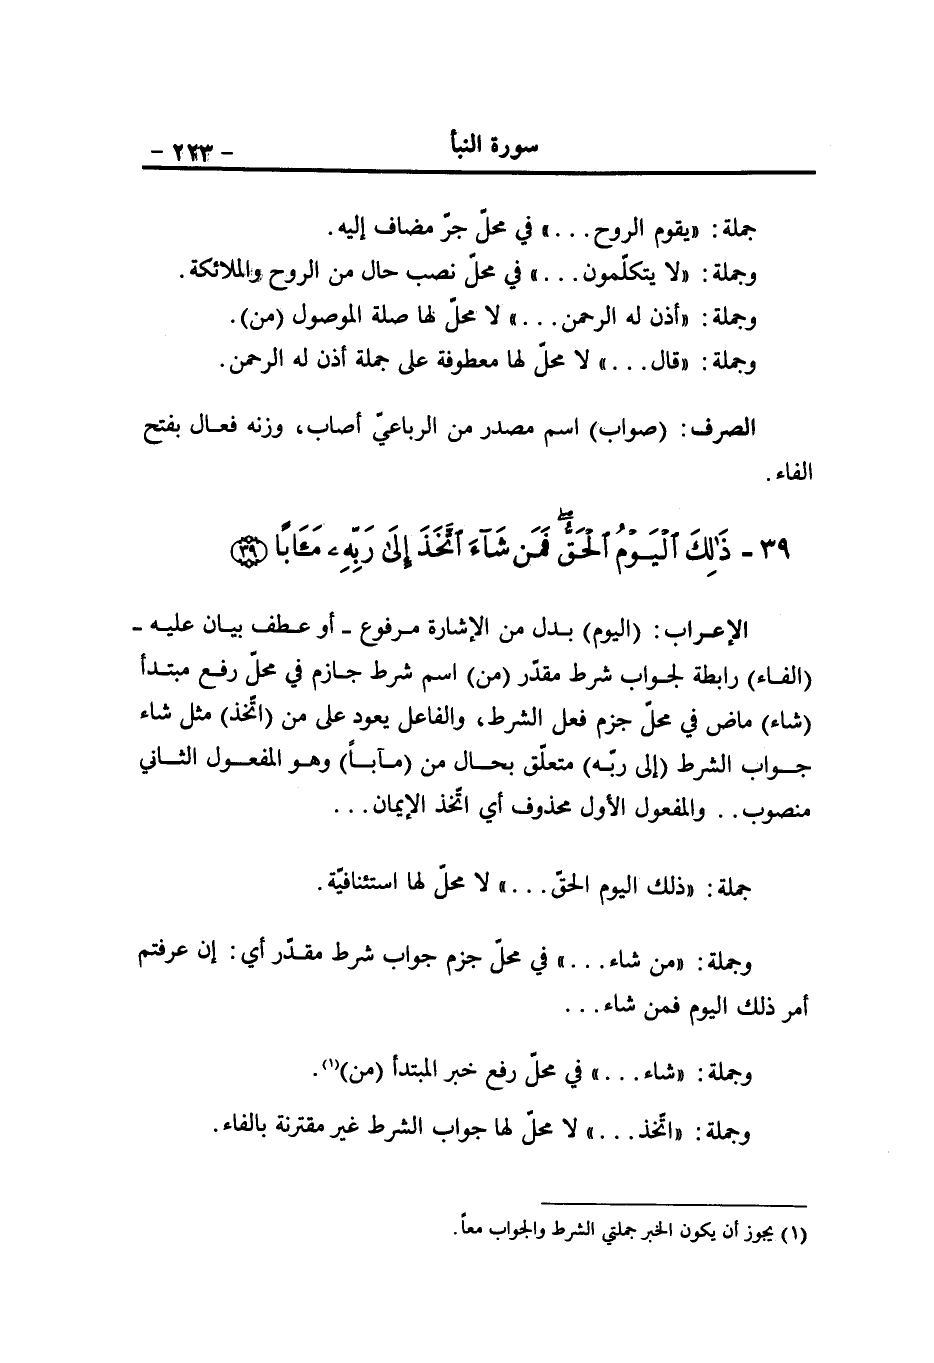 سورة النبأ - ٢٢٣ -
جملة: «يقوم الروح...» في محلّ جرّ مضاف إليه.
وجملة: «لا يتكلّمون...» في محلّ نصب حال من الروح والملائكة.
وجملة: «أذن له الرحمن...» لا محلّ لها صلة الموصول (من).
وجملة: «قال...» لا محلّ لها معطوفة على جملة أذن له الرحمن.
الصرف: (صواب) اسم مصدر من الرباعيّ أصاب، وزنه فعال بفتح
الفاء.
٣٩ - ذَٰلِكَ ٱلْيَوْمُ ٱلْحَقُّ ۖ فَمَن شَآءَ ٱتَّخَذَ إِلَىٰ رَبِّهِۦ مَـَٔابًا ﴿٣٩﴾
الإعراب: (اليوم) بدل من الإشارة مرفوع - أو عطف بيان عليه -
(الفاء) رابطة لجواب شرط مقدّر (من) اسم شرط جازم في محلّ رفع مبتدأ
(شاء) ماض في محلّ جزم فعل الشرط، والفاعل يعود على من (اتّخذ) مثل شاء
جواب الشرط (إلى ربّه) متعلّق بحال من (مآباً) وهو المفعول الثاني
منصوب.. والمفعول الأول محذوف أي اتّخذ الإيمان...
جملة: «ذلك اليوم الحقّ...» لا محلّ لها استئنافيّة.
وجملة: «من شاء...» في محلّ جزم جواب شرط مقدّر أي: إن عرفتم
أمر ذلك اليوم فمن شاء...
وجملة: «شاء...» في محلّ رفع خبر المبتدأ (من)(١).
وجملة: «اتّخذ...» لا محلّ لها جواب الشرط غير مقترنة بالفاء.
(١) يجوز أن يكون الخبر جملتي الشرط والجواب معاً.